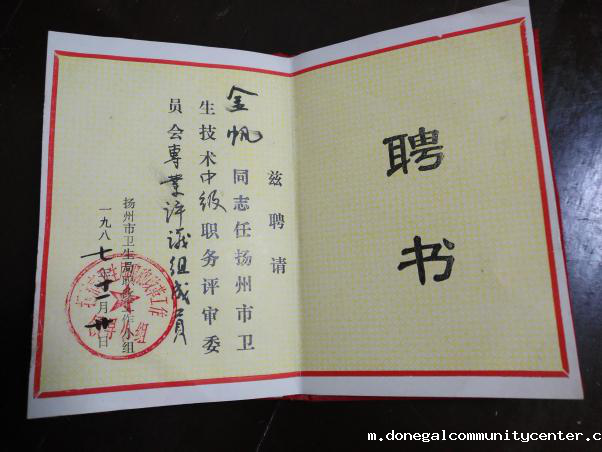 聘书
兹聘请
金帆同志任扬州市卫
生技术中级职务评审委
员会專業评议组成員
扬州市卫生局职改工作小组
一九八七年十一月廿日
m.donegalcommunitycenter.c